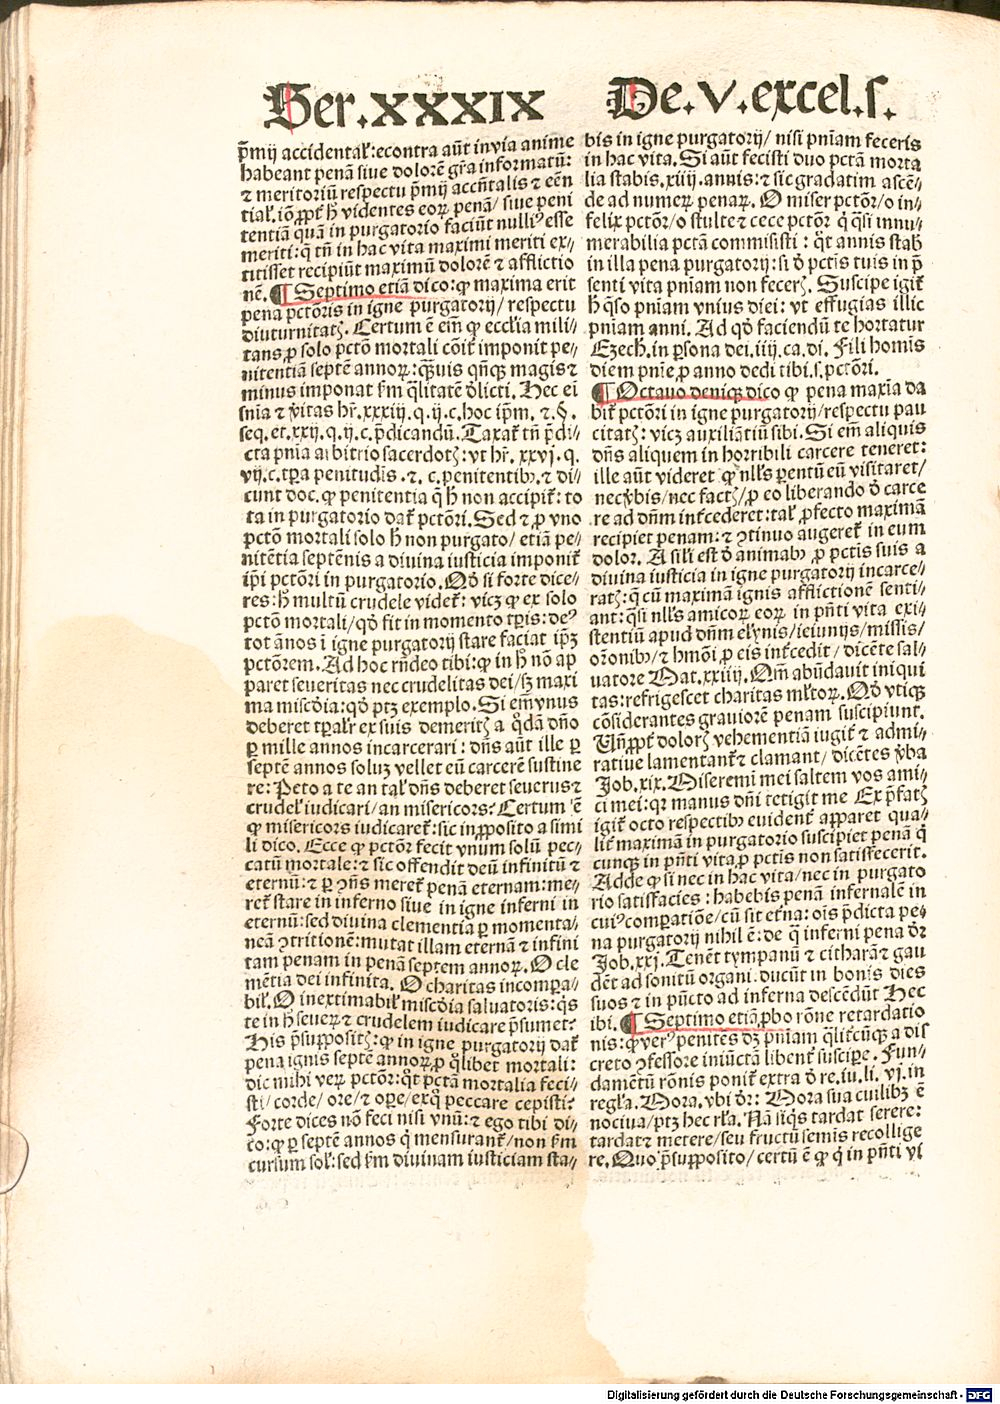 Ser.XXXIX De.V.excel.s.
p̄mij accidental̓:econtra aūt in via anime
habeant penā siue dolorē gr̄a informatū:
⁊ meritoriū respectu p̄mij accn̄talis ⁊ eēn
tial̓.iō ꝓpt̓ h̄ videntes eoꝝ penā/ siue peni
tentiā quā in purgatorio faciūt nulliꝰ esse
meriti:q̄ tn̄ in hac vita maximi meriti ex⸗
titisset recipiūt maximū dolorē ⁊ afflictio
nē.¶ Septimo etiā dico:ꝙ maxima erit
pena pctōris in igne purgatorij/ respectu
diuturnitatꝭ. Certum ē em̄ ꝙ eccl̓ia mili⸗
tans ꝓ solo pctō mortali cōit̓ imponit pe⸗
nitentiā septē annoꝝ: qͣuis qn̄qꝫ magis ⁊
minus imponat km̄ q̄litatē d̓licti. Hec ei
snīa ⁊ v̓itas hr̄.xxxiij.q.ij.c.hoc ip̄m. ⁊.§.
seq. et.xxij.q.ij.c.p̄dicandū.Taxat̓ tn̄ p̄di⸗
cta pn̄ia arbitrio sacerdotꝭ: vt hr̄.xxvj.q.
vij.c.tp̄a penitudīs.⁊.c.penitentibꝰ.⁊ di⸗
cunt doc. ꝙ penitentia q̄ h̄ non accipit̓: to
ta in purgatorio dat̓ pctōri.Sed ⁊ ꝓ vno
pctō mortali solo h̄ non purgato/ etiā pe⸗
nitētia septēnis a diuina iusticia imponit̓
ip̄i pctōri in purgatorio. Qd̓ si forte dice⸗
res:h̄ multū crudele videt̓: vicꝫ ꝙ ex solo
pctō mortali/qd̓ fit in momento tp̄ris:deꝰ
tot ānos ī igne purgatorij stare faciat ip̄ꝫ
pctōrem. Ad hoc rn̄deo tibi:ꝙ in h̄ nō ap
paret seueritas nec crudelitas dei/sꝫ maxi
ma miscd̓ia:qd̓ ptꝫ exemplo. Si em̄ vnus
deberet tp̄alr̓ ex suis demeritꝭ a qd̓ā dn̄o
ꝑ mille annos incarcerari: dn̄s aūt ille ꝑ
septē annos soluꝫ vellet eū carcerē sustine
re: Peto a te an tal̓ dn̄s deberet seuerus ⁊
crudel̓ iudicari/an misericors? Certum ē
ꝙ misericors iudicaret̓: sic in ꝓposito a simi
li dico. Ecce ꝙ pctōr fecit vnum solū pec⸗
catū mortale:⁊ sic offendit deū infinitū ⁊
eternū:⁊ ꝑ ꝯn̄s meret̓ penā eternam:me⸗
ret̓ stare in inferno siue in igne inferni in
eternū:sed diuina clementia ꝑ momenta⸗
neā ꝯtritionē:mutat illam eternā ⁊ infini
tam penam in penā septem annoꝝ. O cle
mētia dei infinita. O charitas incompa⸗
bil̓. O inextimabil̓ miscd̓ia saluatoris:qͥs
te in h̄ seueꝝ ⁊ crudelem iudicare p̄sumet?
His p̄suppositꝭ:ꝙ in igne purgatorij dat̓
pena ignis septē annoꝝ ꝓ qͦlibet mortali:
dic mihi veꝝ pctōr:qͦt pctā mortalia feci⸗
sti/ corde/ ore/⁊ oꝑe/exq̄ peccare cepisti?
Forte dices nō feci nisi vnū:⁊ ego tibi di⸗
co:ꝙ ꝑ septē annos q̄ mensurant̓/non km̄
cursum sol̓:sed km̄ diuinam iusticiam sta⸗
bis in igne purgatorij/ nisi pn̄iam feceris
in hac vita. Si aūt fecisti duo pctā morta
lia stabis.xiiij.annis:⁊ sic gradatim ascē⸗
de ad numeꝝ penaꝝ. O miser pctōr/o in⸗
felix pctōr/o stulte ⁊ cece pctōr q̄ qͣsi innu⸗
merabilia pctā commisisti: qͦt annis stabꝭ
in illa pena purgatorij:si d̓ pctīs tuis in p̄
senti vita pn̄iam non fecerꝭ. Suscipe igit̓
h̄ qͣso pn̄iam vnius diei: vt effugias illic
pn̄iam anni. Ad qd̓ faciendū te hortatur
Ezech.in ꝑsona dei.iiij.ca.di. Fili homīs
diem pn̄ie ꝓ anno dedi tibi.s.pctōri.
¶ Octauo deniqꝫ dico ꝙ pena maxīa da
bit̓ pctōri in igne purgatorij/respectu pau
citatꝭ: vicꝫ auxiliātiū sibi. Si em̄ aliquis
dn̄s aliquem in horribili carcere teneret:
ille aūt videret ꝙ nll̓s parentū eū visitaret/
nec v̓bis/nec factꝭ/ꝓ eo liberando d̓ carce
re ad dn̄m int̓cederet:tal̓ ꝓfecto maximā
recipiet penam:⁊ ꝯtinuo augeret̓ in eum
dolor. A sil̓i est d̓ animabꝰ ꝓ pctīs suis a
diuina iusticia in igne purgatorij incarce⸗
ratꝭ:q̄ cū maximā ignis afflictionē senti⸗
ant:qͣsi nll̓s amicoꝝ eoꝝ in pn̄ti vita exi⸗
stentiū apud dn̄m elynīs/ieiunijs/missis/
orōnibꝰ/⁊ hmōi ꝓ eis int̓cedit/ dicēte sal⸗
uatore Mat.xxiiij. Qm̄ abūdauit iniqui
tas:refrigescet charitas ml̓toꝝ. Qd̓ vtiqꝫ
cōsiderantes grauiorē penam suscipiunt.
Vn̄ ꝓpt̓ dolorꝭ vehementiā iugit̓ ⁊ admi⸗
ratiue lamentant̓ ⁊ clamant/ dicētes v̓ba
Job.xix. Miseremī mei saltem vos ami⸗
ci mei: qꝛ manus dn̄i tetigit me Ex p̄fatꝭ
igit̓ octo respectibꝰ euident̓ apparet qua⸗
lit̓ maximā in purgatorio suscipiet penā qͥ
cunqꝫ in pn̄ti vita ꝓ pctīs non satisfecerit.
Adde ꝙ si nec in hac vita/nec in purgato
rio satisfacies: habebis penā infernalē in
cuiꝰ comparatiōe/cū sit et̓na: oīs p̄dicta pe⸗
na purgatorij nihil ē:de qͣ inferni pena dr̄
Job.xxj. Tenēt tympanū ⁊ citharā ⁊ gau
dēt ad sonitū organi.ducūt in bonis dies
suos ⁊ in pūcto ad inferna descēdūt Hec
ibi.¶ Septimo etiā ꝓbo rōne retardatio
nis:ꝙ verꝰ penitēs dꝫ pn̄iam qͣlit̓cūqꝫ a dis
creto ꝯfessore iniūctā libent̓ suscipe. Fun⸗
damētū rōnis ponit̓ extra d̓ re.iu.li. vj. in
regl̓a. Mora. vbi dr̄: Mora sua cuilibꝫ ē
nociua/ptꝫ hec rl̓a. Nā siqͥs tardat serere:
tardat ⁊ metere/seu fructū semīs recollige
re. Quo p̄supposito/ certū ē ꝙ qͥ in pn̄ti vi
Digitalisierung gefördert durch die Deutsche Forschungsgemeinschaft - DFG